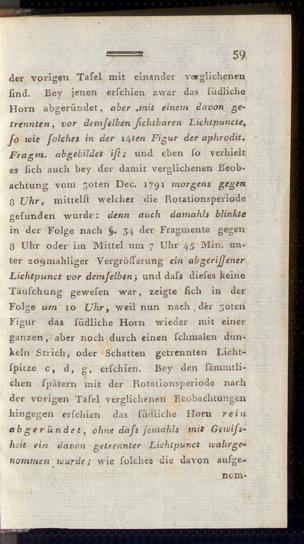 59
der vorigen Tafel mit einander verglichenen
ſind. Bey jenen erſchien zwar das ſüdliche
Horn abgeründet, aber mit einem davon ge-
trennten, vor demſelben ſichtbaren Lichtpuncte,
ſo wie ſolches in der 14ten Figur der aphrodit.
Fragm. abgebildet iſt; und eben ſo verhielt
es ſich auch bey der damit verglichenen Beob-
achtung vom 30ten Dec. 1791 morgens gegen
8 Uhr, mittelſt welcher die Rotationsperiode
gefunden wurde: denn auch damahls blinkte
in der Folge nach §. 34 der Fragmente gegen
8 Uhr oder im Mittel um 7 Uhr 45 Min. un-
ter 209mahliger Vergröſſerung ein abgeriſſener
Lichtpunct vor demſelben; und daſs dieſes keine
Täuſchung geweſen war, zeigte ſich in der
Folge um 10 Uhr, weil nun nach der 30ten
Figur das ſüdliche Horn wieder mit einer
ganzen, aber noch durch einen ſchmalen dun-
keln Strich, oder Schatten getrennten Licht-
ſpitze c, d, g, erſchien. Bey den ſämmtli-
chen ſpätern mit der Rotationsperiode nach
der vorigen Tafel verglichenen Beobachtungen
hingegen erſchien das ſüdliche Horn rein
abgeründet, ohne daſs jemahls mit Gewiſs-
heit ein davon getrennter Lichtpunct wahrge-
nommen wurde; wie ſolches die davon aufge-
nom-